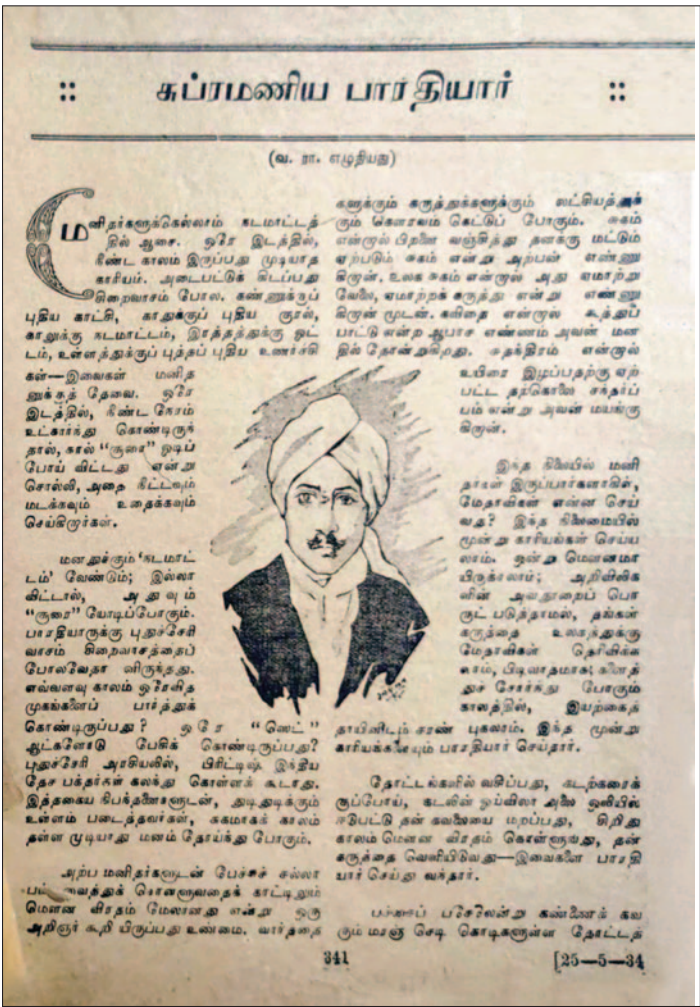 :: சுப்ரமணிய பாரதியார் ::
(வ. ரா. எழுதியது)
மனிதர்களுக்கெல்லாம் நடமாட்டத்
தில் ஆசை. ஒரே இடத்தில்,
நீண்ட காலம் இருப்பது முடியாத
காரியம். அடைபட்டுக் கிடப்பது
சிறைவாசம் போல. கண்ணுக்குப்
புதிய காட்சி, காதுக்குப் புதிய குரல்,
காலுக்கு நடமாட்டம், இரத்தத்துக்கு ஓட்
டம், உள்ளத்துக்குப் புத்தப் புதிய உணர்ச்சி
கள்—இவைகள் மனித
னுக்குத் தேவை. ஒரே
இடத்தில், நீண்ட நேரம்
உட்கார்ந்து கொண்டிருந்
தால், கால் “ரூரை” ஓடிப்
போய் விட்டது என்று
சொல்லி, அதை நீட்டவும்
மடக்கவும் உதைக்கவும்
செய்கிறார்கள்.
மனதுக்கும் ‘நடமாட்
டம்’ வேண்டும்; இல்லா
விட்டால், அதுவும்
“ரூரை” யோடிப்போகும்.
பாரதியாருக்கு புதுச்சேரி
வாசம் சிறைவாசத்தைப்
போலவேதா னிருந்தது.
எவ்வளவு காலம் ஒரேவித
முகங்களைப் பார்த்துக்
கொண்டிருப்பது? ஒரே “ஸெட்”
ஆட்களோடு பேசிக் கொண்டிருப்பது?
புதுச்சேரி அரசியலில், பிரிட்டிஷ் இந்திய
தேச பக்தர்கள் கலந்து கொள்ளக் கூடாது.
இத்தகைய நிபந்தனைகளுடன், துடிதுடிக்கும்
உள்ளம் படைத்தவர்கள், சுகமாகக் காலம்
தள்ள முடியாது மனம் தோய்ந்து போகும்.
அற்ப மனிதர்களுடன் பேச்சுச் சல்லா
பம் வைத்துக் கொள்ளுவதைக் காட்டிலும்
மௌன விரதம் மேலானது என்று ஒரு
அறிஞர் கூறி யிருப்பது உண்மை. வார்த்தை
களுக்கும் கருத்துக்களுக்கும் லட்சியத்துக்
கும் கௌரவம் கெட்டுப் போகும். சுகம்
என்றால் பிறனை வஞ்சித்து தனக்கு மட்டும்
ஏற்படும் சுகம் என்று அற்பன் எண்ணு
கிறான். உலக சுகம் என்றால் அது ஏமாற்று
வேலை, ஏமாற்றக் கருத்து என்று எண்ணு
கிறான் மூடன். கவிதை என்றால் கூத்துப்
பாட்டு என்ற ஆபாச எண்ணம் அவன் மன
தில் தோன்றுகிறது. சுதந்திரம் என்றால்
உயிரை இழப்பதற்கு ஏற்
பட்ட தற்கொலை சந்தர்ப்
பம் என்று அவன் மயங்கு
கிறான்.
இந்த நிலையில் மனி
தர்கள் இருப்பார்களாகில்,
மேதாவிகள் என்ன செய்
வது? இந்த நிலைமையில்
மூன்று காரியங்கள் செய்ய
லாம். ஒன்று மௌனமா
யிருக்கலாம்; அறிவிலிக
ளின் அவதூறைப் பொ
ருட் படுத்தாமல், தங்கள்
கருத்தை உலகத்துக்கு
மேதாவிகள் தெரிவிக்க
லாம், பிடிவாதமாக;
துச் சோர்ந்து போகும்
காலத்தில், இயற்கைத்
தாயினிடம் சரண் புகலாம். இந்த மூன்று
காரியங்களையும் பாரதியார் செய்தார்.
தோட்டங்களில் வசிப்பது, கடற்கரைக்
குப்போய், கடலின் ஒப்பிலா அலை ஒலியில்
ஈடுபட்டு தன் கவலையை மறப்பது, சிறிது
காலம் மௌன விரதம் கொள்ளுவது, தன்
கருத்தை வெளியிடுவது—இவைகளை பாரதி
யார் செய்து வந்தார்.
பச்சைப் பசேலென்று கண்ணைக் கவ
ரும் மரஞ் செடி கொடிகளுள்ள தோட்டத்
341
[25—5—34